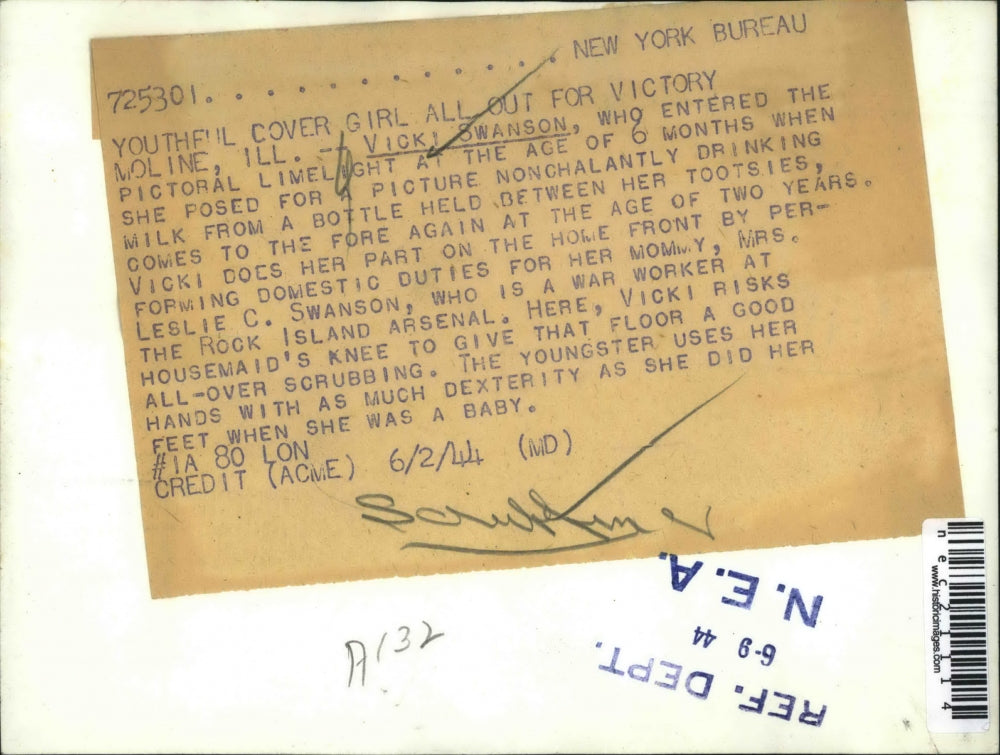 725301. . . . . . . . . . . . . NEW YORK BUREAU
YOUTHFUL COVER GIRL ALL OUT FOR VICTORY
MOLINE, ILL. -- VICKI SWANSON, WHO ENTERED THE
PICTORAL LIMELIGHT AT THE AGE OF 6 MONTHS WHEN
SHE POSED FOR A PICTURE NONCHALANTLY DRINKING
MILK FROM A BOTTLE HELD BETWEEN HER TOOTSIES,
COMES TO THE FORE AGAIN AT THE AGE OF TWO YEARS.
VICKI DOES HER PART ON THE HOME FRONT BY PER-
FORMING DOMESTIC DUTIES FOR HER MOMMY, MRS.
LESLIE C. SWANSON, WHO IS A WAR WORKER AT
THE ROCK ISLAND ARSENAL. HERE, VICKI RISKS
HOUSEMAID'S KNEE TO GIVE THAT FLOOR A GOOD
ALL-OVER SCRUBBING. THE YOUNGSTER USES HER
HANDS WITH AS MUCH DEXTERITY AS SHE DID HER
FEET WHEN SHE WAS A BABY.
#1A 80 LON
CREDIT (ACME) 6/2/44 (MD)
Scrubbing
A132
REF. DEPT.
6-9 44
N.E.A.
nec21114
www.historicimages.com